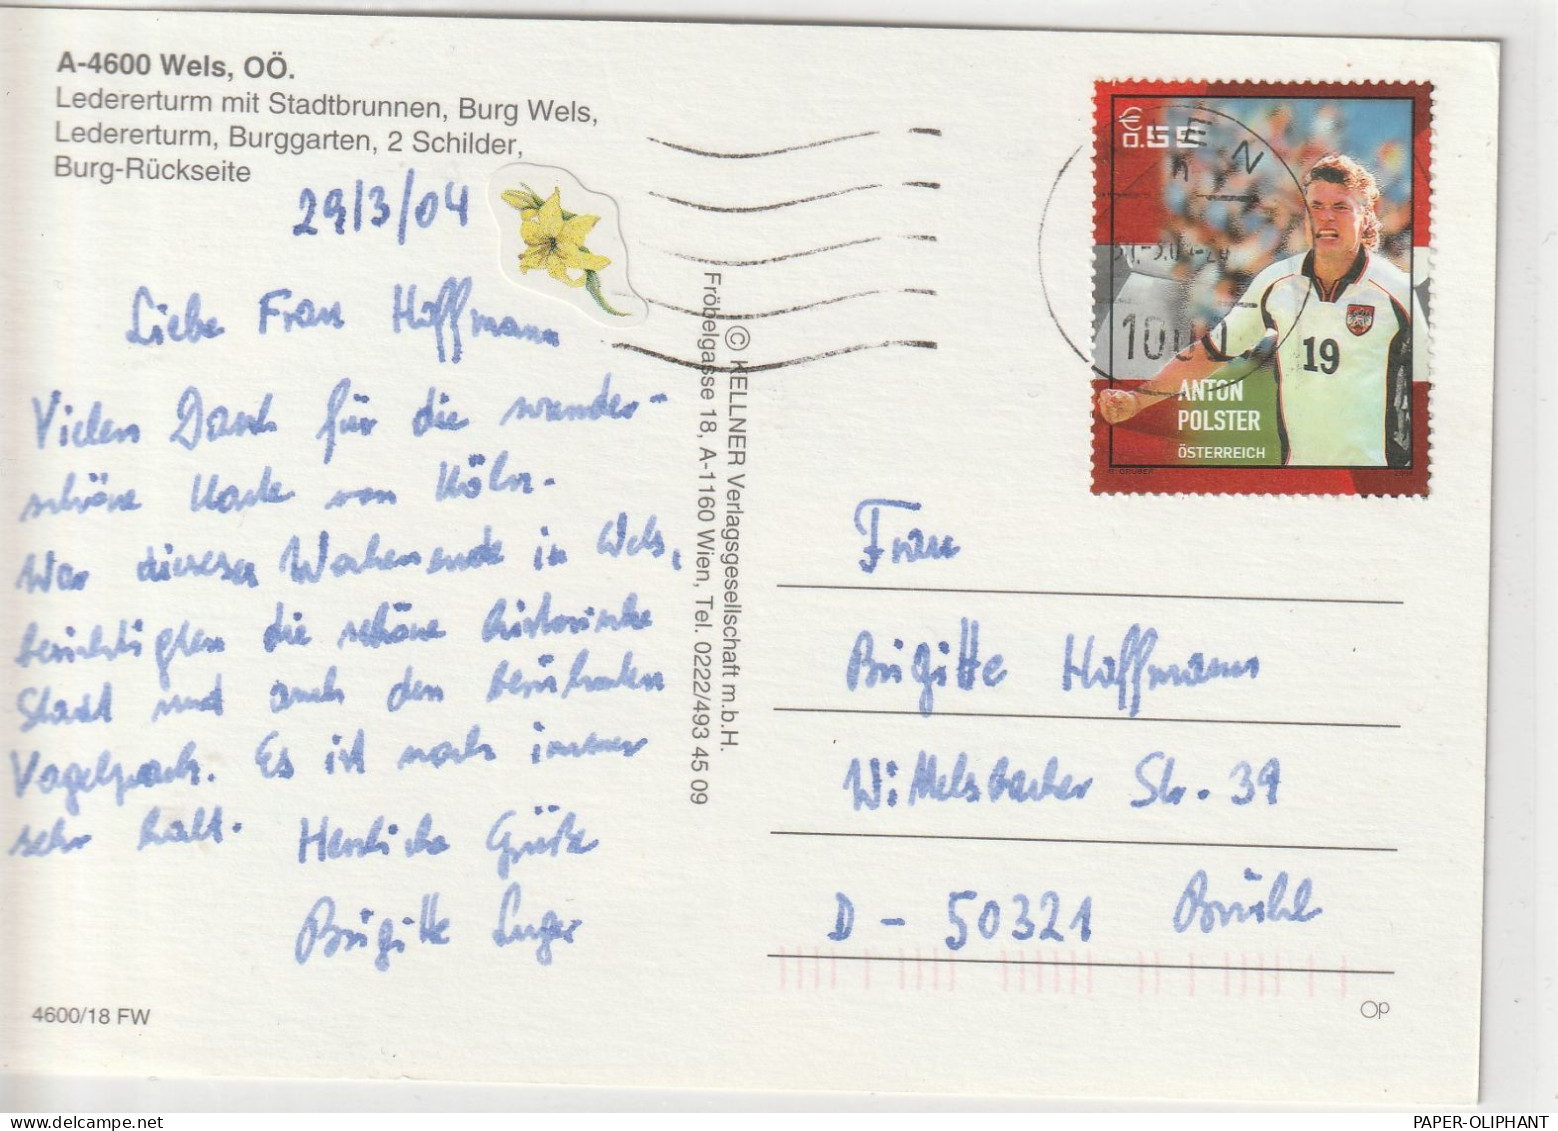 A-4600 Wels, OÖ.
Ledererturm mit Stadtbrunnen, Burg Wels,
Ledererturm, Burggarten, 2 Schilder,
Burg-Rückseite
29/3/04
Liebe Frau Hoffmann
Vielen Dank für die wunder-
schöne Karte von Köln.
War dieses Wochenende in Wels,
besichtigten die schöne historische
Stadt und auch den berühmten
Vogelpark. Es ist noch immer
sehr kalt.
Herzliche Grüße
Brigitte Luger
4600/18 FW
© KELLNER Verlagsgesellschaft m.b.H.
Fröbelgasse 18, A-1160 Wien, Tel. 0222/493 45 09
€
0.55
19
ANTON
POLSTER
ÖSTERREICH
Frau
Brigitte Hoffmann
Wittelsbacher Str. 39
D - 50321 Brühl
PAPER-OLIPHANT